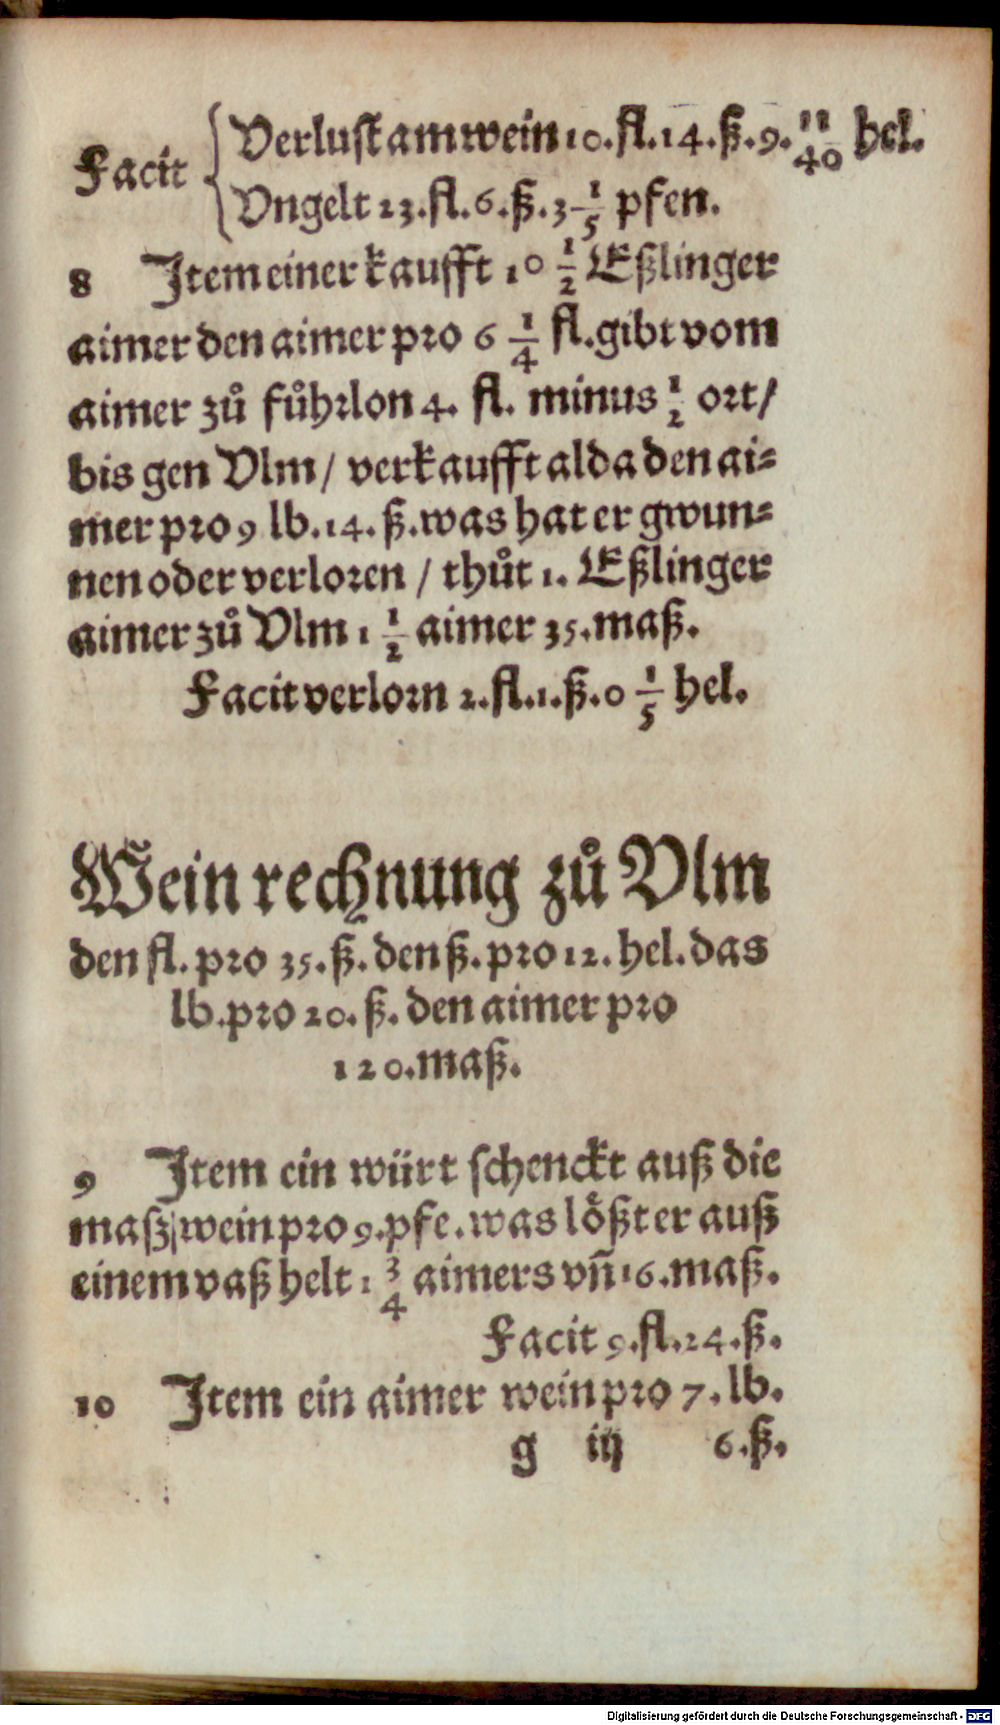 Facit { Verlust am wein 10. fl. 14. ß. 9. 11/40 hel.
Vngelt 23. fl. 6. ß. 3 1/5 pfen.
8 Item einer kaufft 10 1/2 Eßlinger
aimer den aimer pro 6 1/4 fl. gibt vom
aimer zů fůhrlon 4. fl. minus 1/2 ort/
bis gen Vlm/ verkaufft alda den ai-
mer pro 9 lb. 14. ß. was hat er gwun-
nen oder verloren / thůt 1. Eßlinger
aimer zů Vlm 1 1/2 aimer 35. maß.
Facit verlorn 2. fl. 1. ß. 0 1/5 hel.
Wein rechnung zů Vlm
den fl. pro 35. ß. den ß. pro 12. hel. das
lb. pro 20. ß. den aimer pro
120. maß.
9 Item ein würt schenckt auß die
masz wein pro 9. pfe. was lößt er auß
einem vaß helt 1 3/4 aimers vñ 16. maß.
Facit 9. fl. 24. ß.
10 Item ein aimer wein pro 7. lb.
g iij 6. ß.
Digitalisierung gefördert durch die Deutsche Forschungsgemeinschaft - DFG